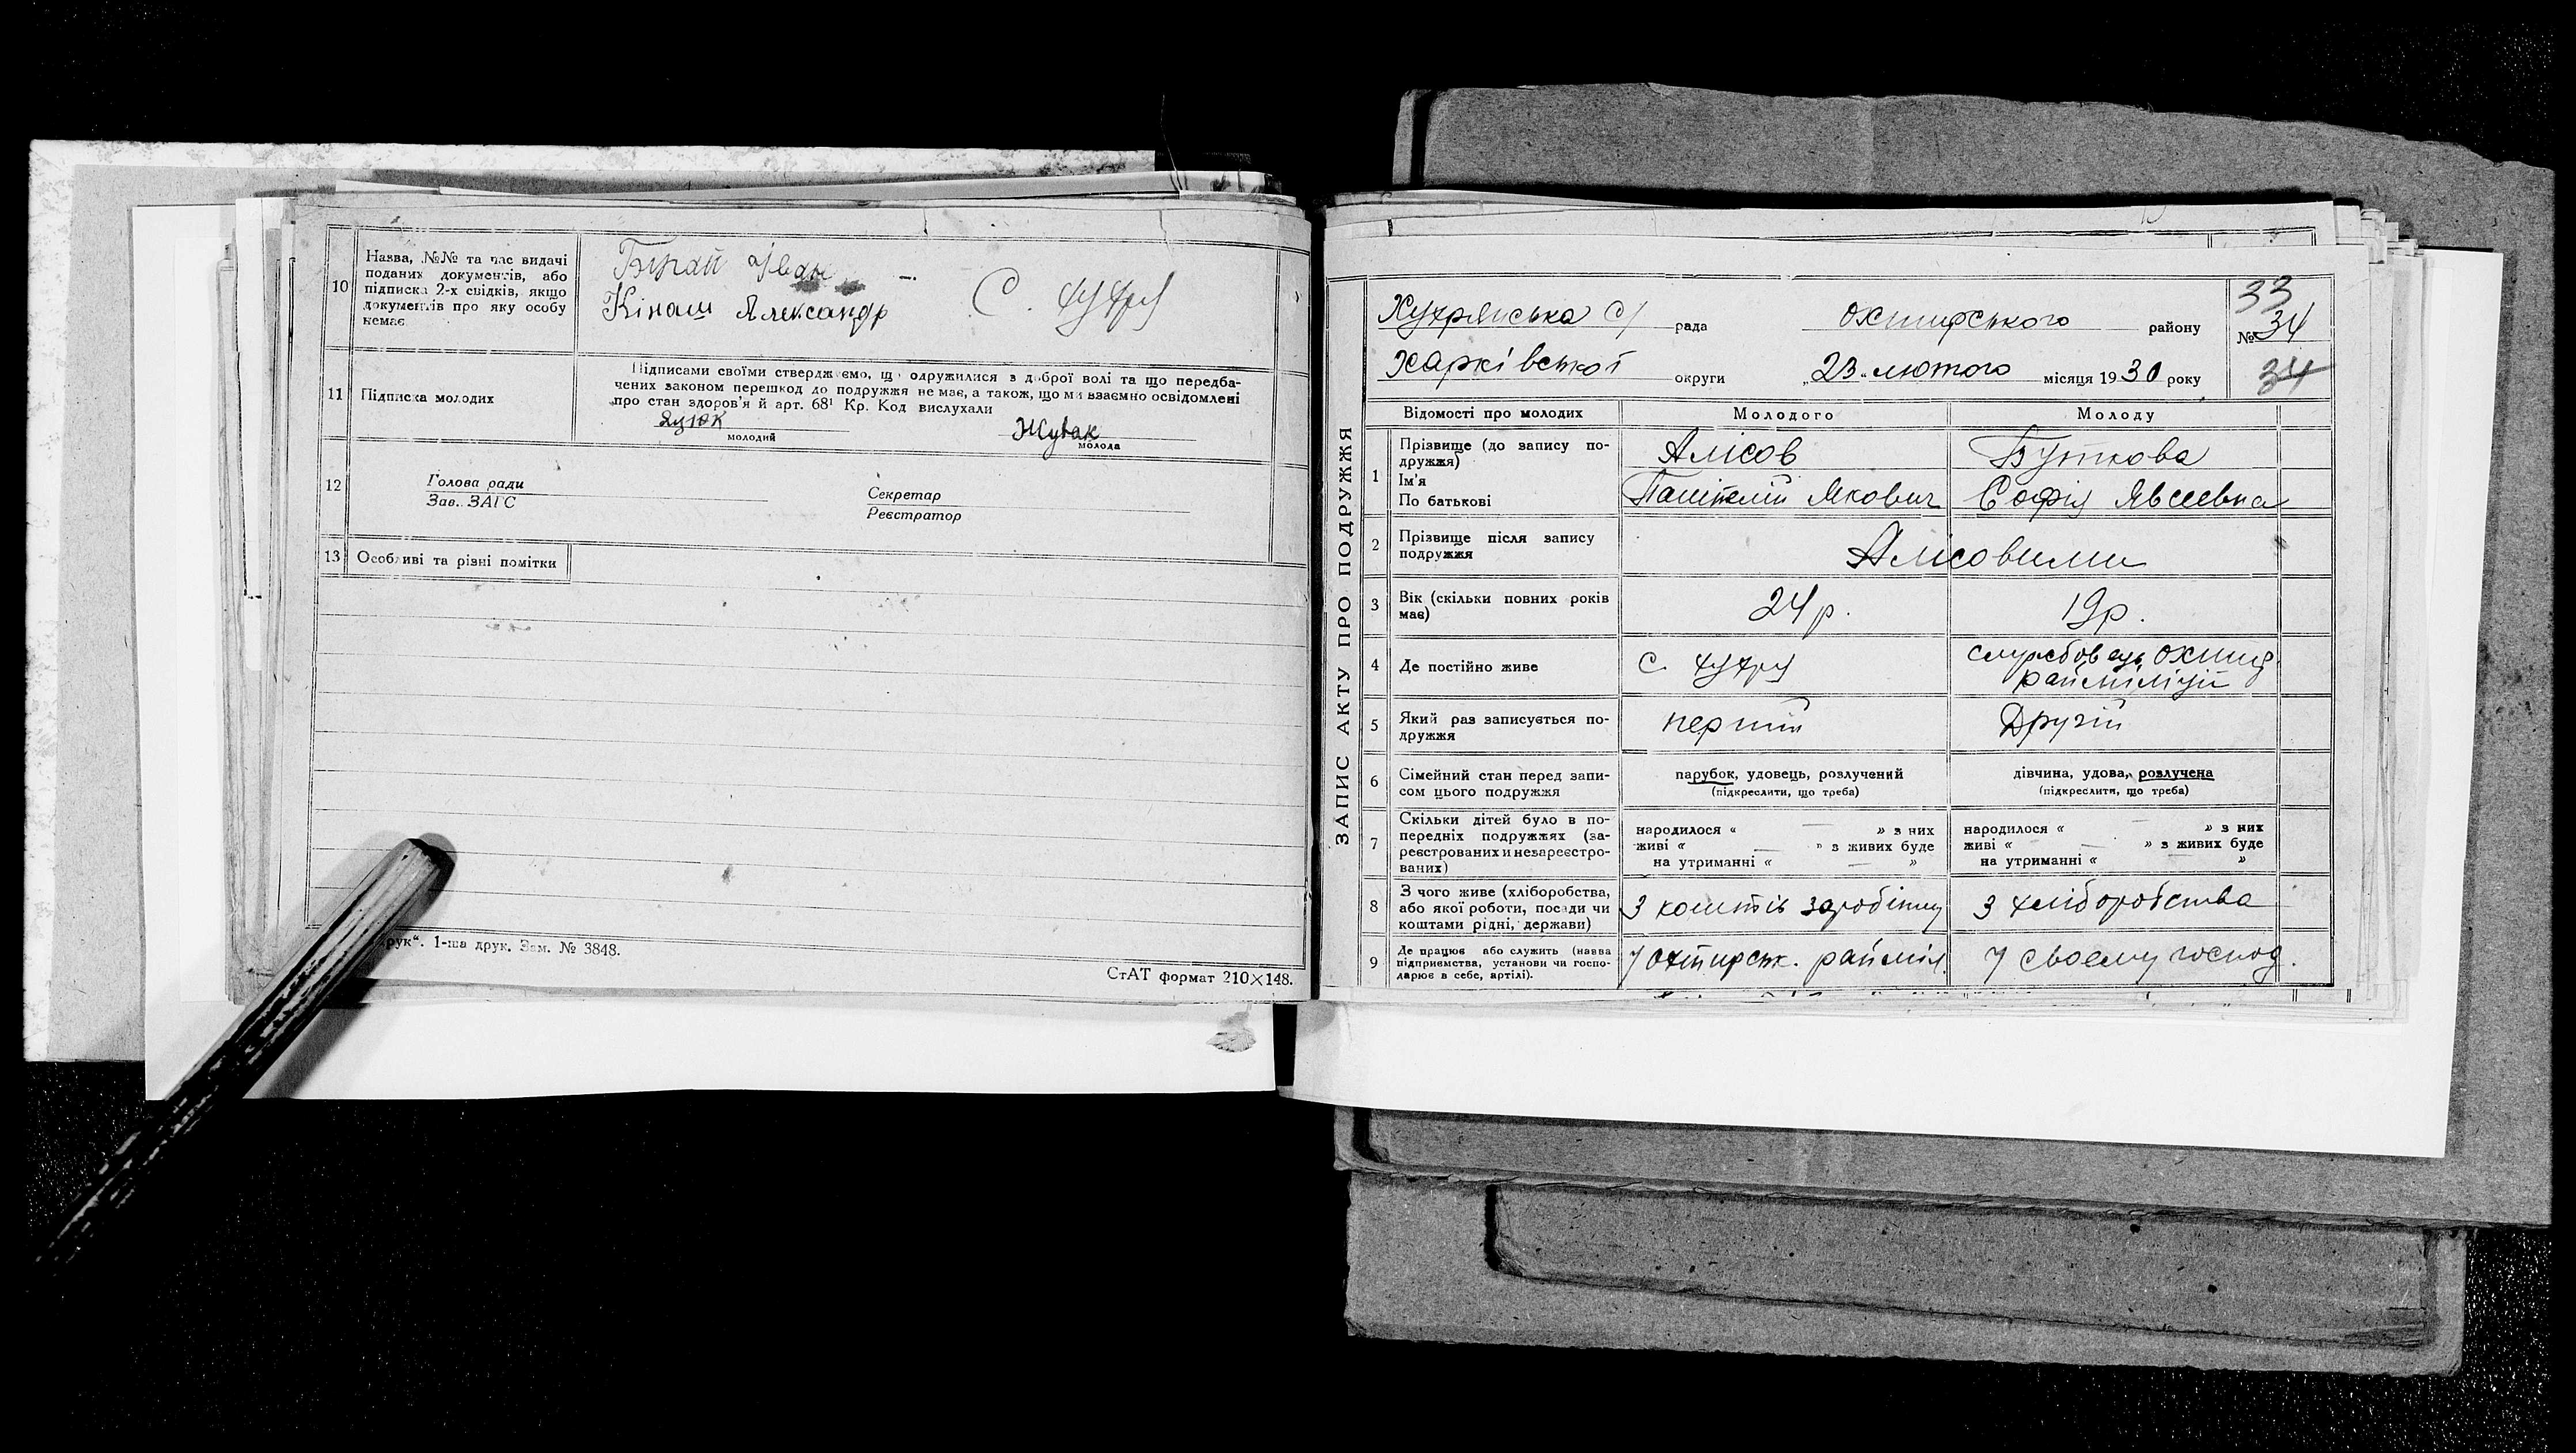 10
Назва, №№ та час видачі
поданих документів, або
підписка 2-х свідків, якщо
документів про яку особу
немає
Іван
Кінаш Александр
С. Хухря
11
Підписка молодих
Підписами своїми стверджуємо, що одружилися з доброї волі та що передба-
чених законом перешкод до подружжя немає, а також, що ми взаємно освідомлені
про стан здоров'я й арт. 68¹ Кр. Код вислухали
Яцюк
молодий
Жувак
молода
12
Голова ради
Зав. ЗАГС
Секретар
Реєстратор
13
Особливі та різні помітки
друк“. 1-ша друк. Зам. № 3848.
СтАТ формат 210×148.
ЗАПИС АКТУ ПРО ПОДРУЖЖЯ
Хухрянська с/ рада Охтирського району
33
№ 34
34
Харківської округи „23“ лютого місяця 1930 року
Відомості про молодих
Молодого
Молоду
1
Прізвище (до запису по-
дружжя)
Ім'я
По батькові
Алісов
Якович
Буткова
Софія Явсеевна
2
Прізвище після запису
подружжя
Алісовими
3
Вік (скільки повних років
має)
24 р.
19 р.
4
Де постійно живе
С. Хухря
службовець Охтир
райміліції
5
Який раз записується по-
дружжя
перший
Другій
6
Сімейний стан перед запи-
сом цього подружжя
парубок, удовець, розлучений
(підкреслити, що треба)
дівчина, удова, розлучена
(підкреслити, що треба)
7
Скільки дітей було в по-
передніх подружжях (за-
реєстрованих и незареєстро-
ваних)
народилося « — » з них
живі « — » з живих буде
на утриманні « — »
народилося « — » з них
живі « — » з живих буде
на утриманні « »
8
З чого живе (хліборобства,
або якої роботи, посади чи
коштами рідні, держави)
З коштів заробітку
З хліборобства
9
Де працює або служить (назва
підприємства, установи чи госпо-
дарює в себе, артілі).
У Охтирськ. райміл.
У своему господ.